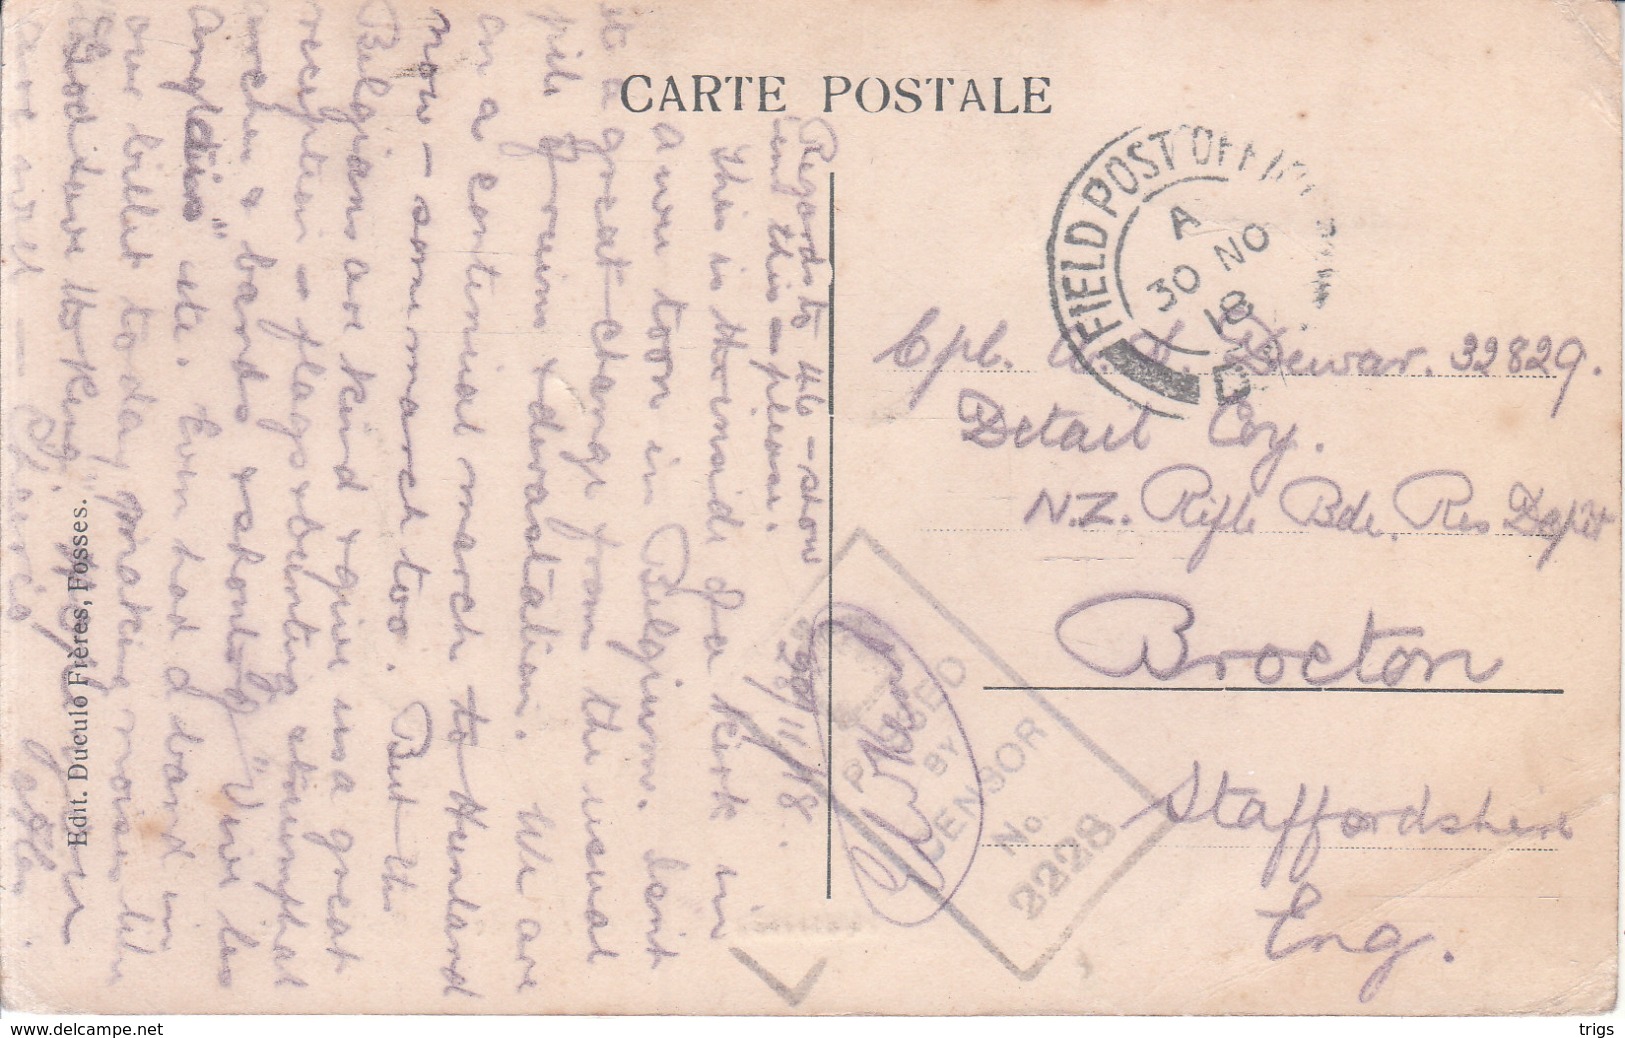 CARTE POSTALE
FIELD POST OFFICE
A
30 NO
18
D
Cpl. Dewar. 32829.
Detail Coy.
N.Z. Rifle Bde. Res Depôt
Brocton
Staffordshire
Eng.
PASSED
BY
CENSOR
No
2228
28/11/18.
Regards to the - show
this - please.
This is the inside of a kirk in
a wee toon in Belgium. Isnt
it a great change from the usual
pile of ruins & devastation. We are
on a continual march to Hunland
now - some march too. But the
Belgians are kind & give us a great
reception - flags & bunting triumphal
arches & bands & shouting "Vive les
Anglais" etc. Even had a band in
our billet today making noises like
"God save the King." Hope you
are well -
Edit. Duculo Frères, Fosses.
delcampe.net
trigs